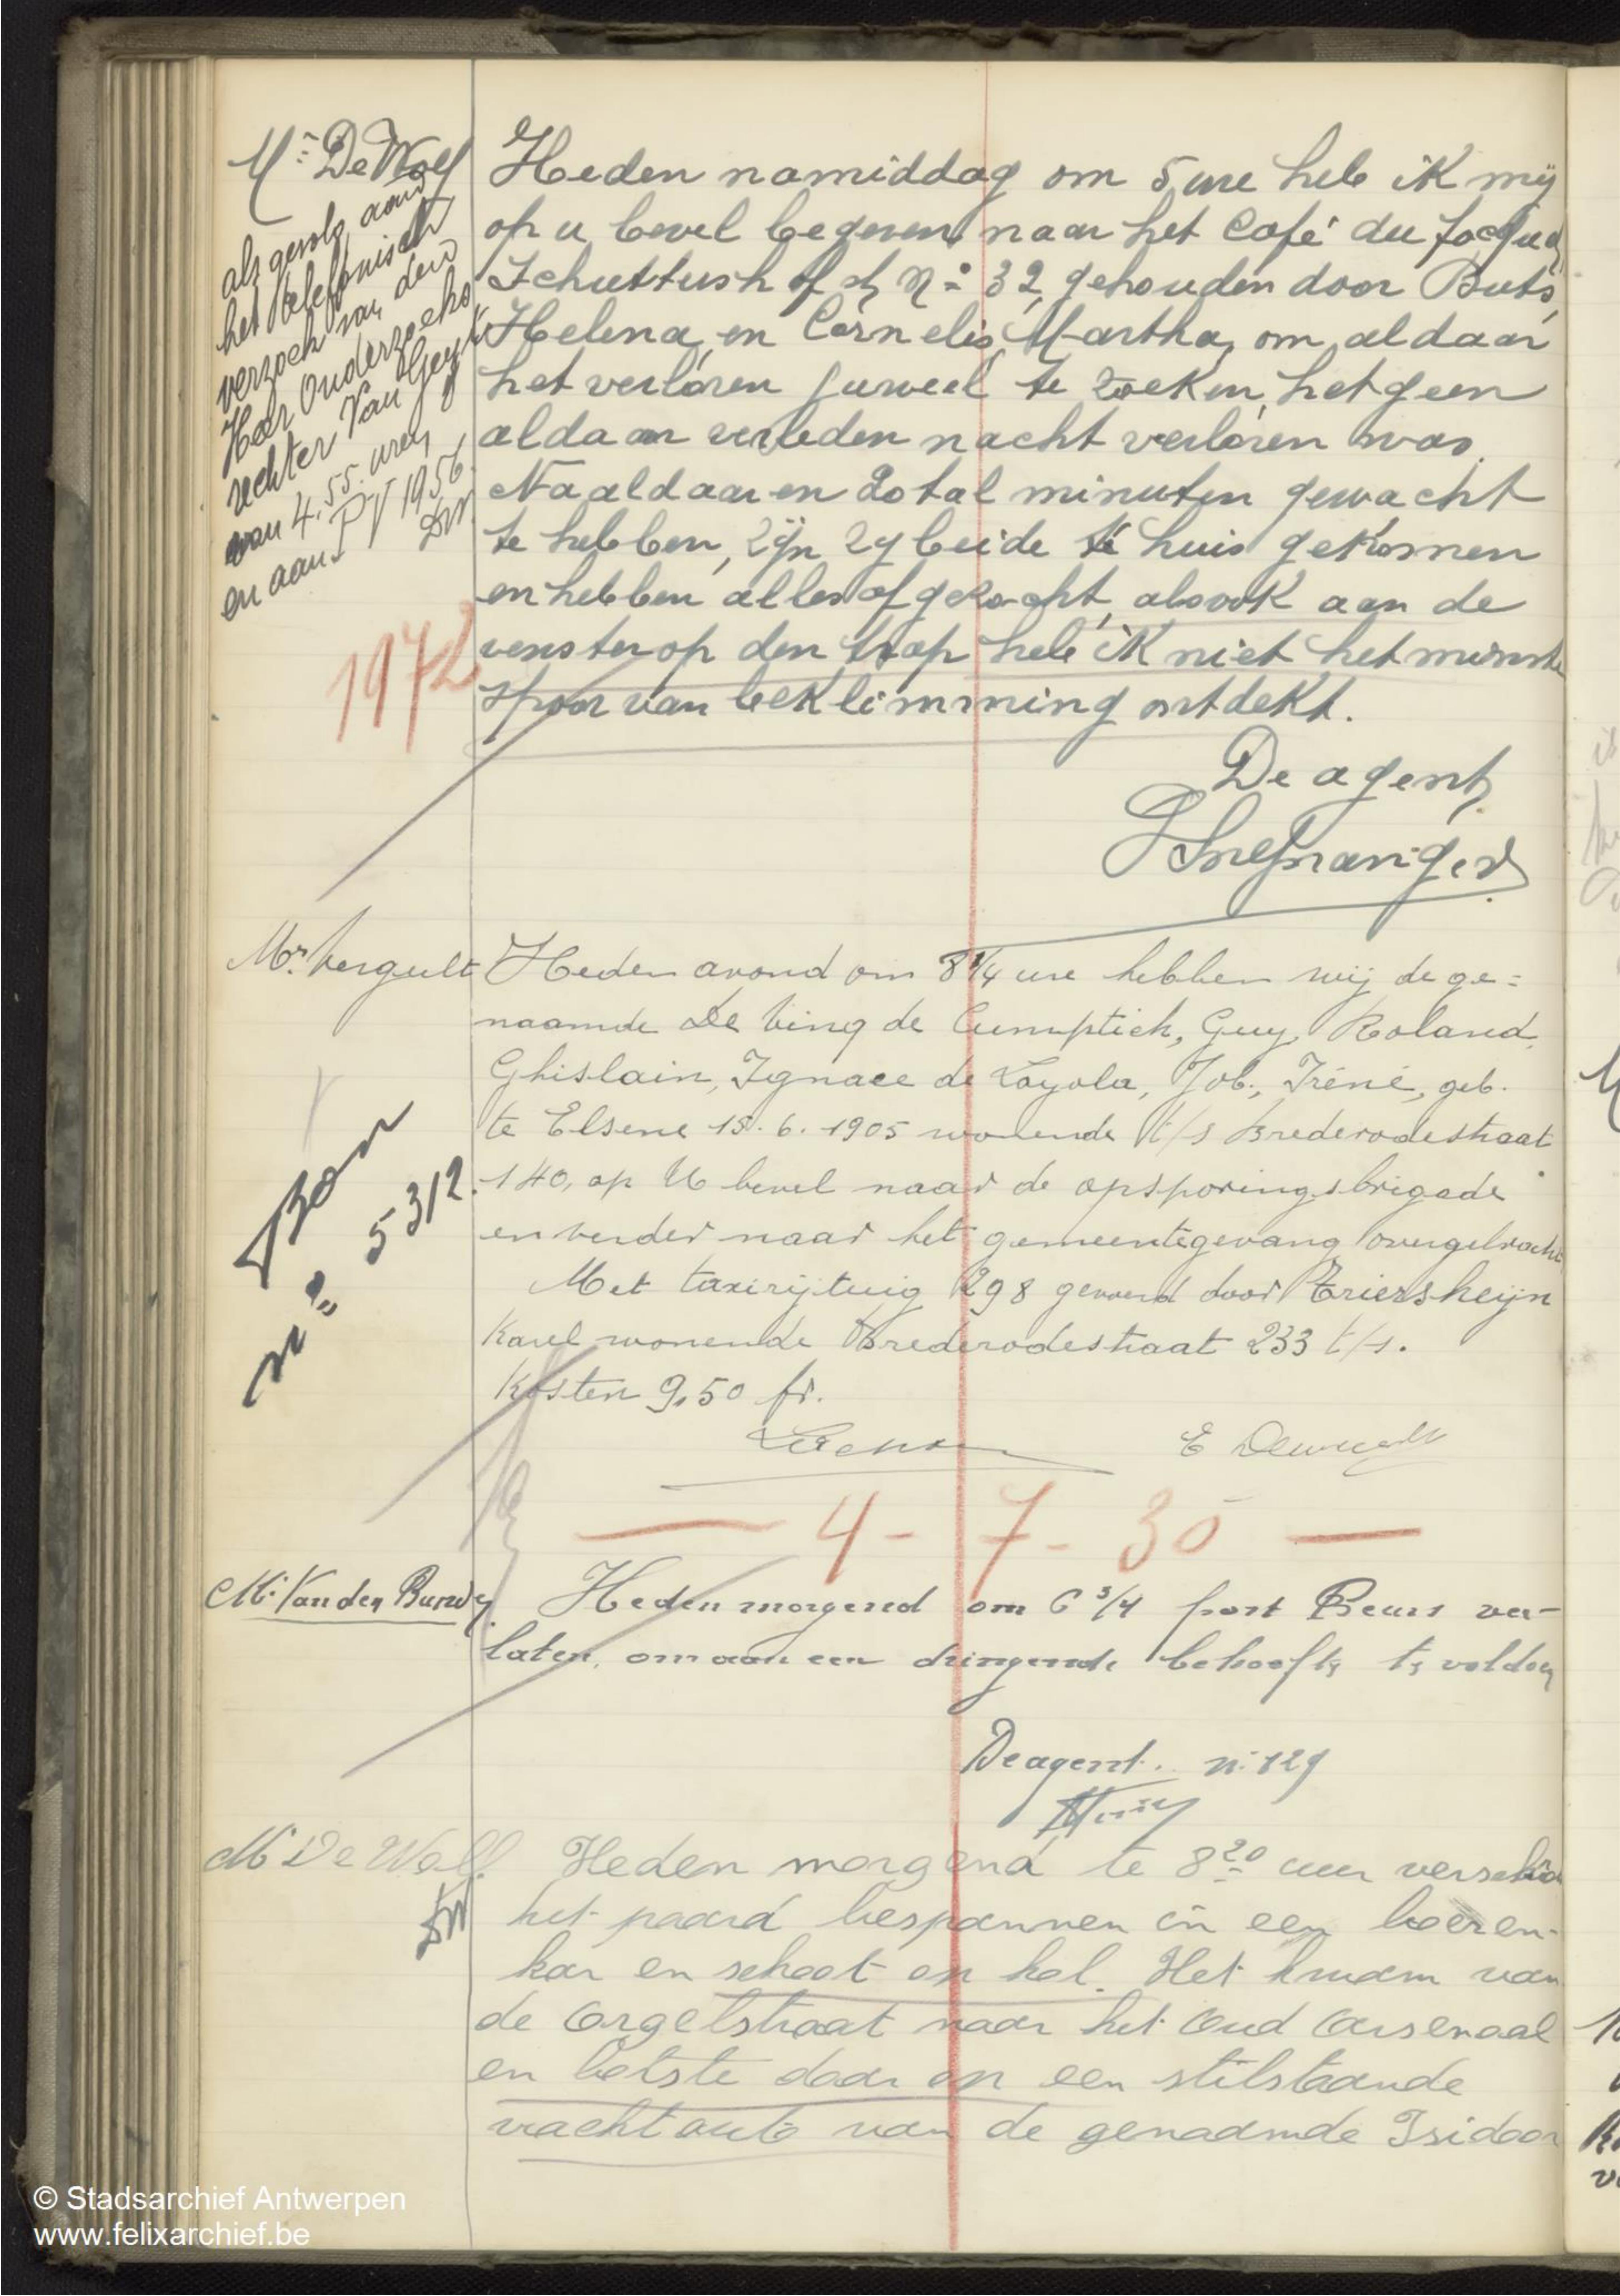 Mr De Wolf
als gevolg aan
het telefonisch
verzoek van den
Heer Onderzoeks
rechter Van Geyt
van 4.55 uren
en aan PV 1956
DW
1972
Heden namiddag om 5 ure heb ik mij
op u bevel begeven naar het Café du
n° 32, gehouden door Buts
Helena, en Cornelis Martha, om aldaar
het verloren juweel te zoeken, hetgeen
aldaar verleden nacht verloren was.
Na aldaar en 20 tal minuten gewacht
te hebben, zijn zy beide te huis gekomen
en hebben alles afgezocht, alsook aan de
venster op den trap heb ik niet het minste
spoor van beklimming ontdekt.
De agent,
Mr. Vergult
Bon
n° 5312.
Heden avond om 8 1/4 ure hebben wij de ge=
naamde De Ving de Cumptich, Guy, Roland,
Ghislain, Ignace de Loyola, Job., Iréné, geb.
te Elsene 18.6.1905 wonende t/s Brederodestraat
140, op U bevel naar de opsporingsbrigade
en verder naar het gemeentegevang overgebracht
Met taxirijtuig 298 gevoerd door
Karel wonende Brederodestraat 233 t/s.
Kosten 9,50 fr.
— 4 - 7 - 30 —
Heden morgend om 6 3/4 post Beurs ver-
laten, om aan een dringende behoefte te voldoen
De agent. n° 129
Mr De Wolf.
DW
Heden morgend te 8 20 uur verschoot
het paard bespannen in een boeren-
kar en schoot op hol. Het kwam van
de Orgelstraat naar het Oud Arsenaal
en botste daar op een stilstaande
vrachtauto van de genaamde Isidoor
© Stadsarchief Antwerpen
www.felixarchief.be